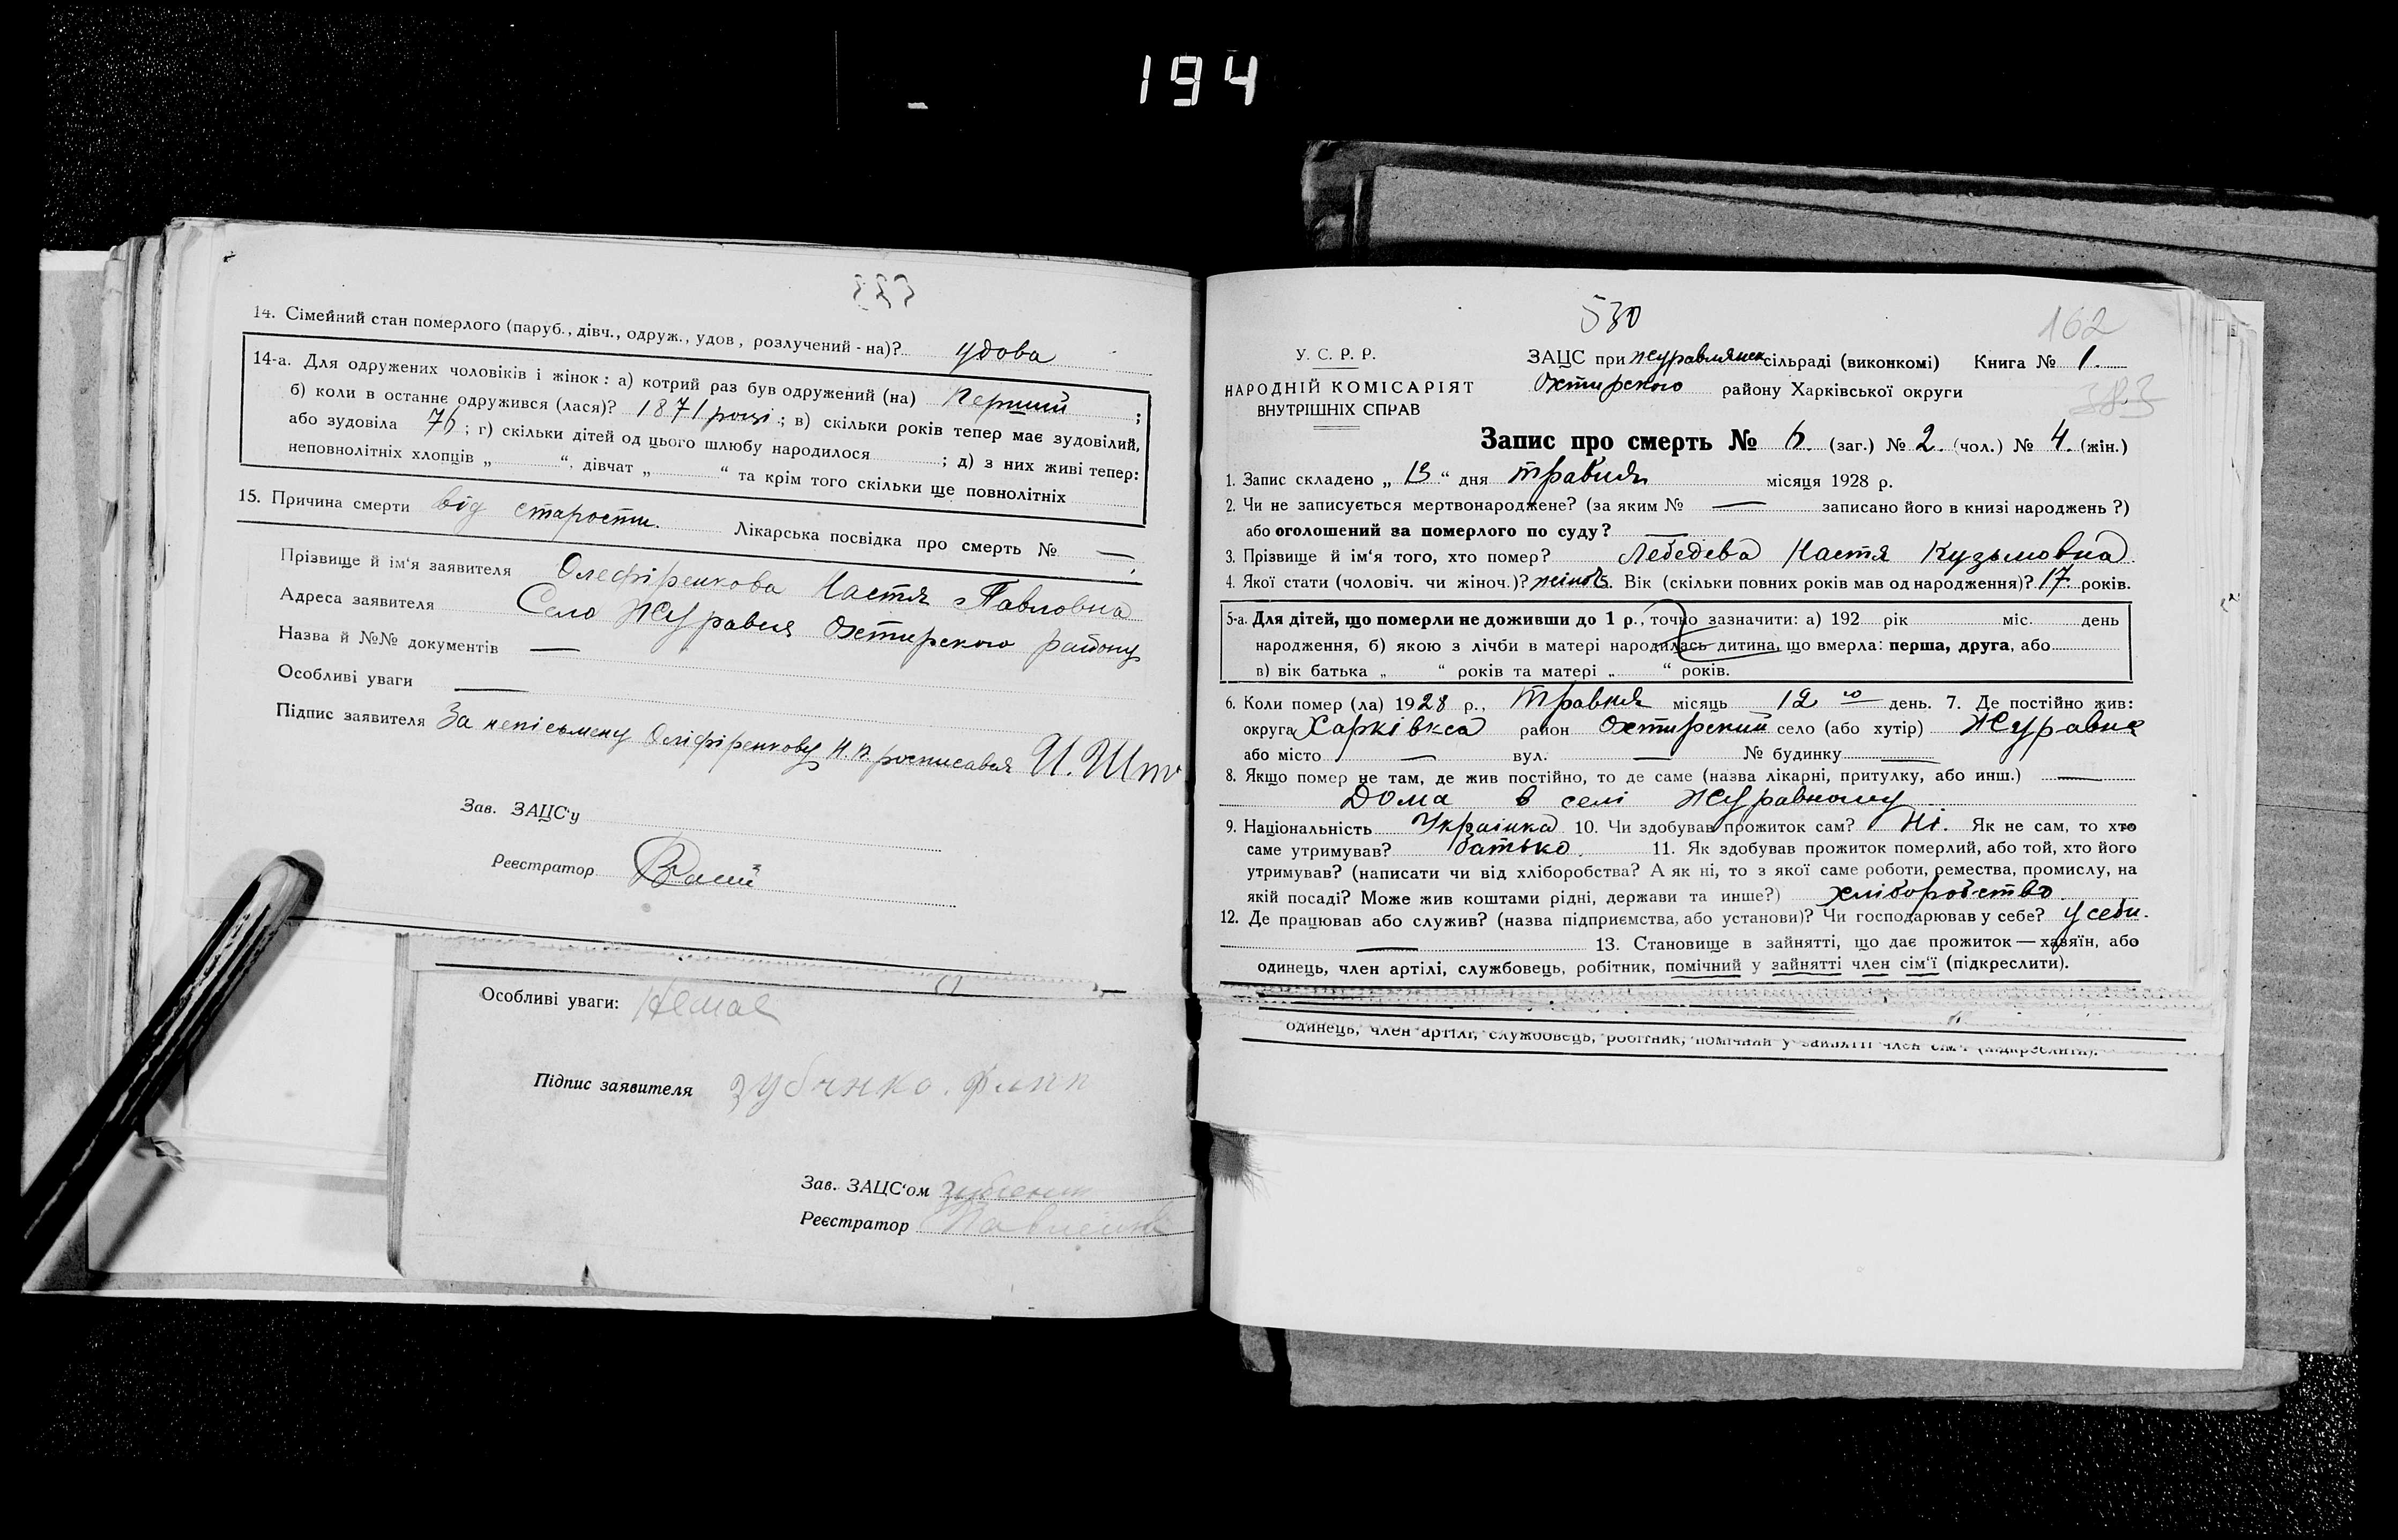 194
14. Сімейний стан померлого (паруб., дівч., одруж., удов, розлучений - на)? удова
14-а. Для одружених чоловіків і жінок: а) котрий раз був одружений (на) Перший ;
б) коли в останнє одружився (лася)? 1871 році ; в) скільки років тепер має зудовілий,
або зудовіла 76 ; г) скільки дітей од цього шлюбу народилося ; д) з них живі тепер:
неповнолітніх хлопців „ “. дівчат „ “ та крім того скільки ще повнолітніх
15. Причина смерти від старости. Лікарська посвідка про смерть № —
Прізвище й ім'я заявителя Олефіренкова Настя Павловна
Адреса заявителя Село Журавня Охтирского району
Назва й №№ документів —
Особливі уваги —
Підпис заявителя За непісьмену Оліфіренкову Н. П. росписався И. Шт
Зав. ЗАЦС'у
Реєстратор
Особливі уваги: Немає
Підпис заявителя
Зав. ЗАЦС'ом
Реєстратор
530
162
У. С. Р. Р.
НАРОДНІЙ КОМІСАРІЯТ
ВНУТРІШНІХ СПРАВ
ЗАЦС при журавлянск сільраді (виконкомі) Книга № 1.
Охтирского району Харківської округи
Запис про смерть № 6. (заг.) № 2. (чол.) № 4. (жін.)
1. Запис складено „ 13 “ дня травня місяця 1928 р.
2. Чи не записується мертвонароджене? (за яким № — записано його в книзі народжень ?)
або оголошений за померлого по суду? —
3. Прізвище й ім'я того, хто помер? Лебедева Настя Кузьмовна
4. Якої стати (чоловіч. чи жіноч.)? жіноч 5. Вік (скільки повних років мав од народження)? 17 років.
5-а. Для дітей, що померли не доживши до 1 р., точно зазначити: а) 192 рік міс. день
народження, б) якою з лічби в матері народилась дитина, що вмерла: перша, друга, або
в) вік батька „ “ років та матері „ “ років.
6. Коли помер (ла) 1928 р., Травня місяць 12 го день. 7. Де постійно жив:
округа Харківкса район Охтирский село (або хутір) Журавне
або місто — вул. — № будинку —
8. Якщо помер не там, де жив постійно, то де саме (назва лікарні, притулку, або инш.) —
Дома в селі Журавному
9. Національність Українка 10. Чи здобував прожиток сам? Ні. Як не сам, то хто
саме утримував? батько. 11. Як здобував прожиток померлий, або той, хто його
утримував? (написати чи від хліборобства? А як ні, то з якої саме роботи, ремества, промислу, на
якій посаді? Може жив коштами рідні, держави та инше?) хліборобство
12. Де працював або служив? (назва підприємства, або установи)? Чи господарював у себе? у себи.
— 13. Становище в зайнятті, що дає прожиток — хазяїн, або
одинець, член артілі, службовець, робітник, помічний у зайнятті член сім'ї (підкреслити).
одинець, член артілі, службовець, робітник, помічний у зайнятті член сім'ї (підкреслити).